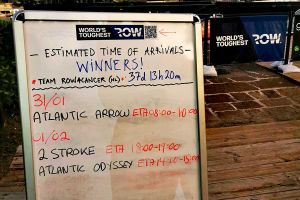 WORLD'S TOUGHEST ROW
- ESTIMATED TIME OF ARRIVALS -
WINNERS!
* TEAM ROW4CANCER (NL) * 37d 13h 20m
31/01
ATLANTIC ARROW ETA 08:00 - 10:00
01/02
2 STROKE ETA 18:00 - 19:00
ATLANTIC ODYSSEY ETA 14:10 - 15:00
WORLD'S TOUGHEST ROW